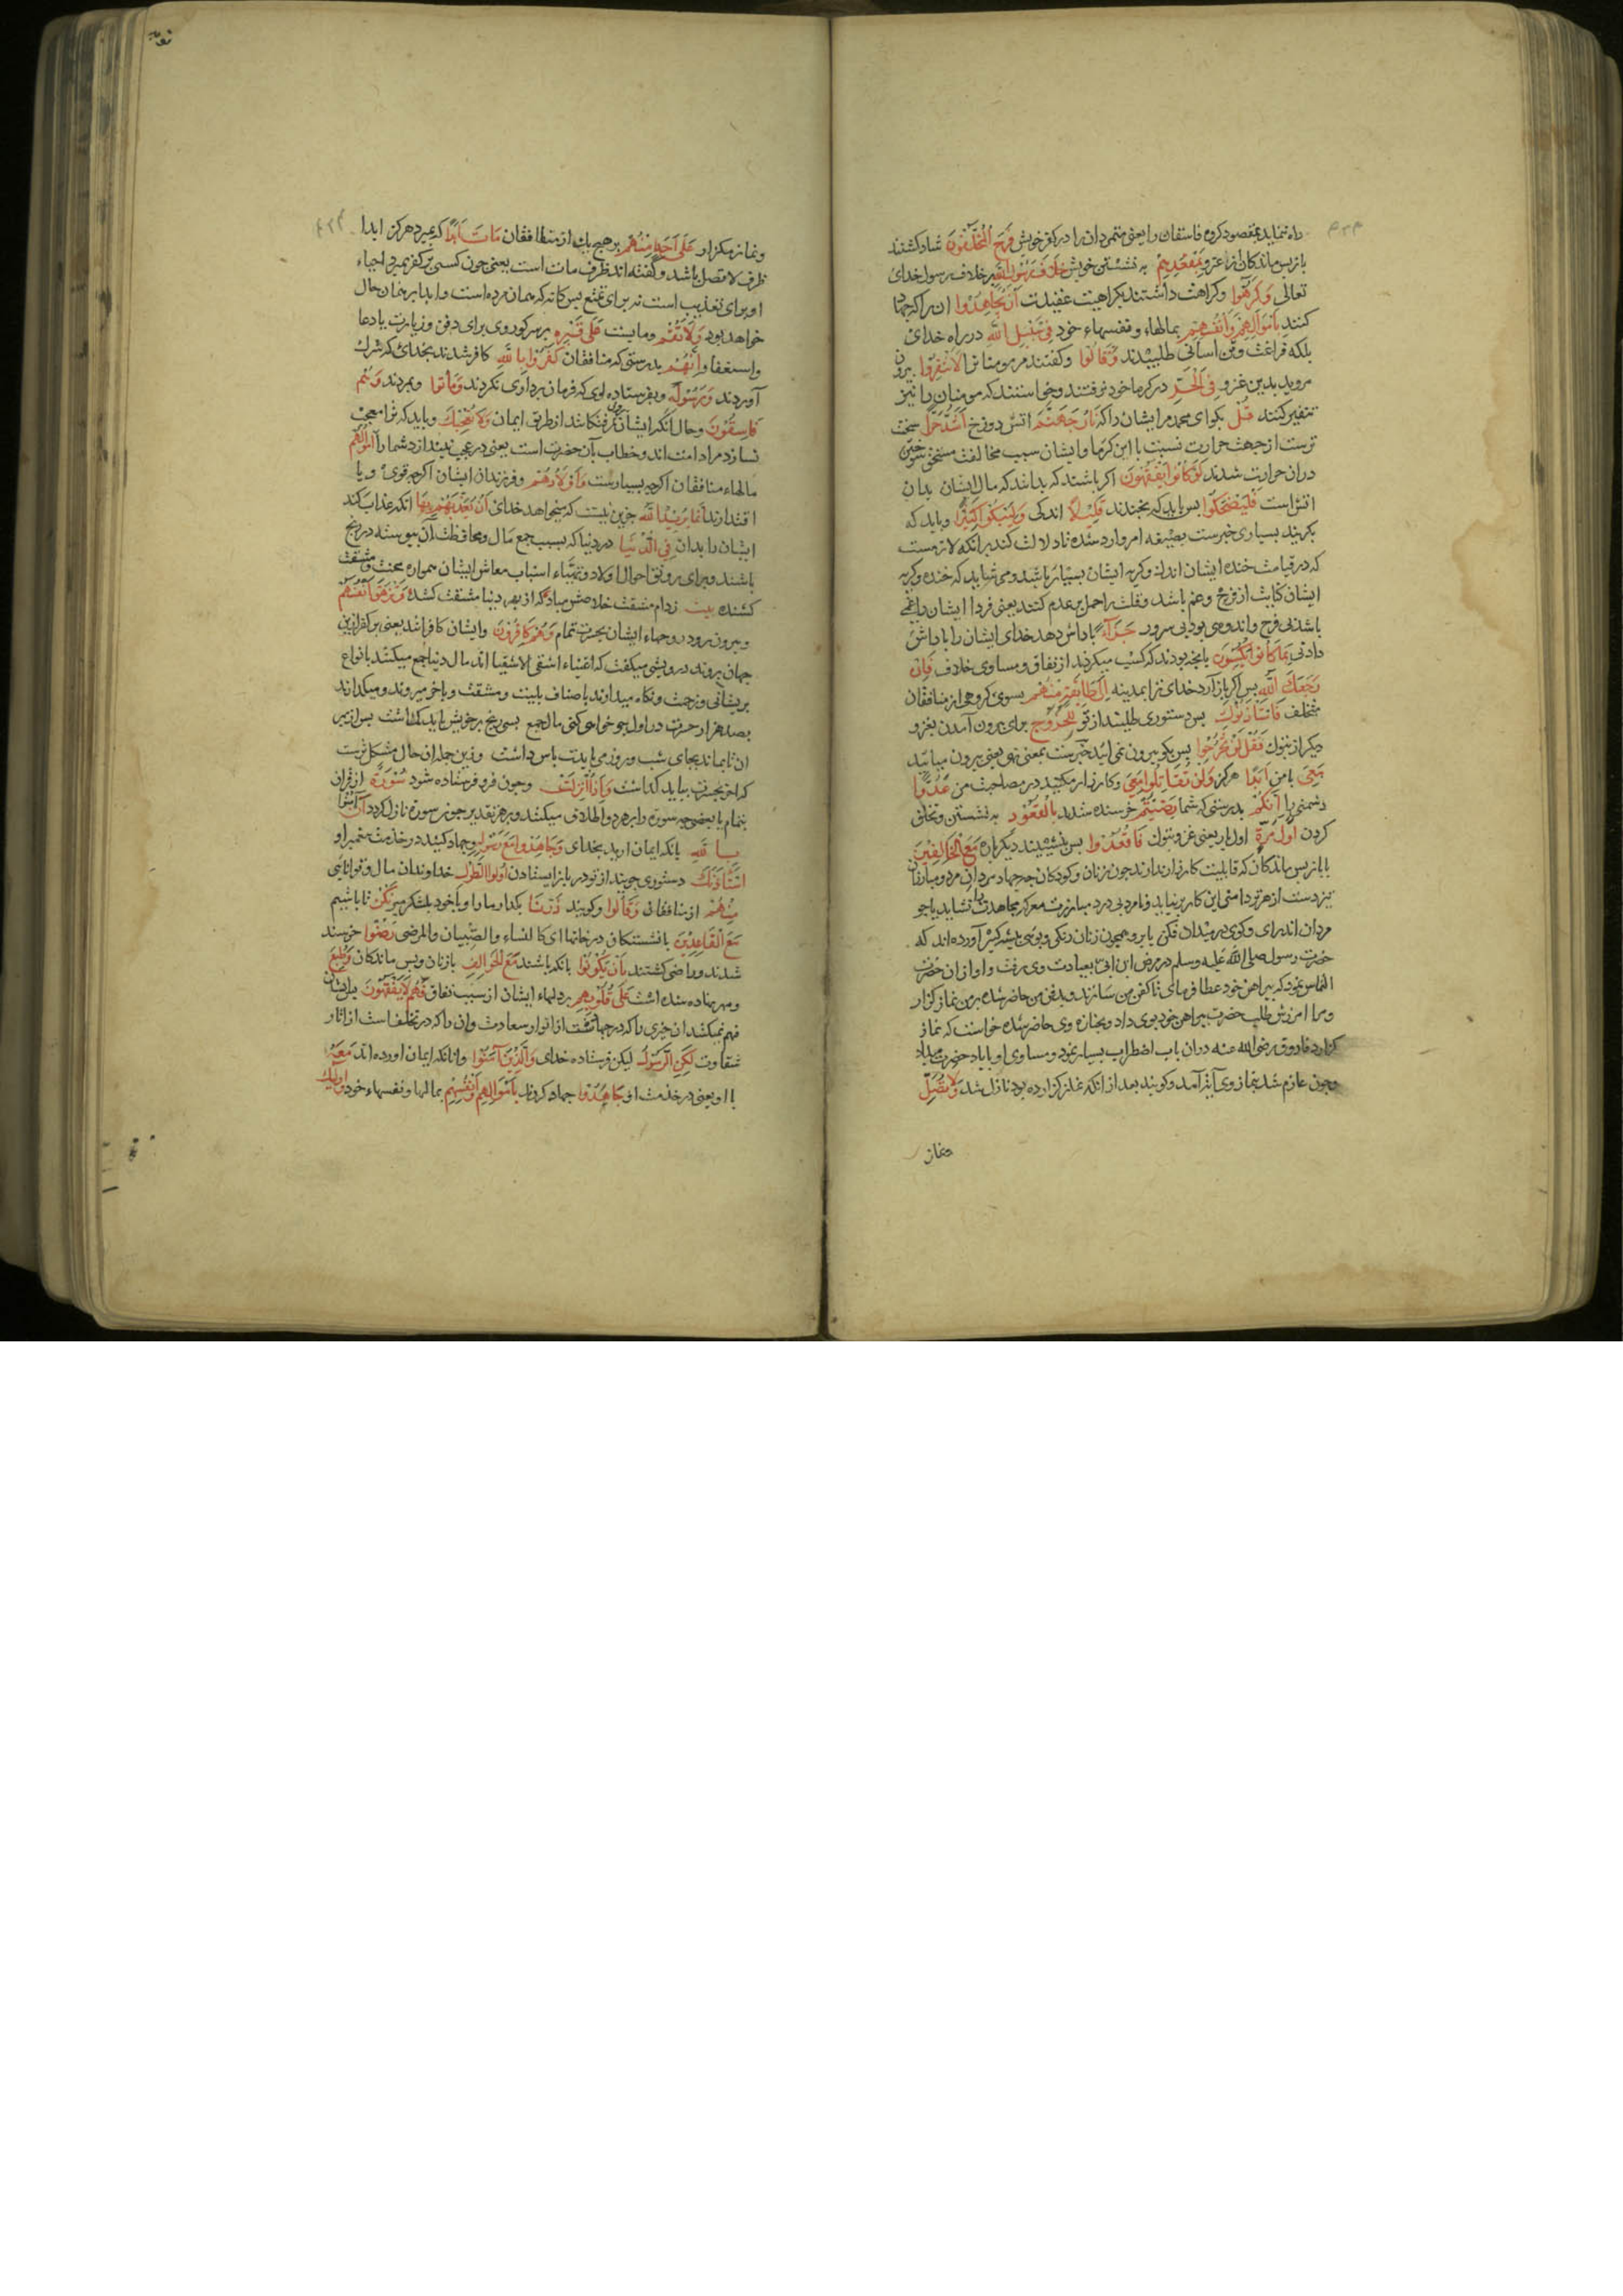 راه ننماید بمقصود کروه فاسقان را یعنی متمردان را در کفر خویش فَرِحَ الْمُخَلَّفُونَ شاد کشتند
باز پس ماندکان از غزو بِمَقْعَدِهِمْ به نشستن خویش خِلَافَ رَسُولِ اللَّهِ بر خلاف رسول خدای
تعالی وَكَرِهُوا وکراهت داشتند بکراهیت عقیدت أَنْ يُجَاهِدُوا ان را که جهاد
کنند بِأَمْوَالِهِمْ وَأَنْفُسِهِمْ بمالهاء و نفسهاء خود فِي سَبِيلِ اللَّهِ در راه خدای
بلکه فراغت و تن اسانی طلبیدند وَقَالُوا وکفتند مر مومنانرا لَا تَنْفِرُوا بیرون
مروید بدین غزو فِي الْحَرِّ در کرما خود نرفتند وخواستند که مومنان را نیز
تنفیر کنند قُلْ بکو ای محمد مر ایشان را که نَارُ جَهَنَّمَ اتش دوزخ أَشَدُّ حَرًّا سخت
ترست از جهت حرارت نسبت با این کرما و ایشان سبب مخالفت مستحق سوختن
دران حرارت شدند لَوْ كَانُوا يَفْقَهُونَ اکر باشند که بدانند که مال ایشان بدان
اتش است فَلْيَضْحَكُوا پس باید که بخندند قَلِيلًا اندکی وَلْيَبْكُوا كَثِيرًا و باید که
بکریند بسیاری خبرست بصیغه امر وارد شده تا دلالت کند بر انکه لازمست
که در قیامت خنده ایشان اندک و کریه ایشان بسیار باشد و می شاید که خنده و کریه
ایشان کنایت از فرح و غم باشد و قلت را حمل بر عدم کنند یعنی فردا ایشان را غمی
باشد بی فرح و اندوهی بود بی سرور جَزَاءً پاداش دهد خدای ایشان را پاداش
دادنی بِمَا كَانُوا يَكْسِبُونَ بانچه بودند که کسب میکردند از نفاق و مساوی خلاف فَإِنْ
رَجَعَكَ اللَّهُ پس اکر باز آرد خدای ترا بمدینه إِلَى طَائِفَةٍ مِنْهُمْ بسوی کروهی از منافقان
متخلف فَاسْتَأْذَنُوكَ پس دستوری طلبند از تو لِلْخُرُوجِ برای بیرون آمدن بغزو
دیکر از تبوک فَقُلْ لَنْ تَخْرُجُوا پس بکو بیرون نمی ائید خبرست بمعنی نهی یعنی بیرون میائید
مَعِيَ با من أَبَدًا هرکز وَلَنْ تُقَاتِلُوا مَعِيَ وکارزار مکنید در مصاحبت من عَدُوًّا
دشمنی را إِنَّكُمْ بدرستی که شما رَضِيتُمْ خرسنده شدید بِالْقُعُودِ به نشستن و تخلق
کردن أَوَّلَ مَرَّةٍ اول بار یعنی غزو تبوک فَاقْعُدُوا پس بنشینید دیکر باره مَعَ الْخَالِفِينَ
با باز پس ماندکان که قابلیت کارزار ندارند چون زنان و کودکان چه جهاد مردان مرد و مبارزان
نبرد است از هر تردامنی این کار بر نیاید و نامردی درد مبارزت معرکه مجاهدت را نشاید یا چو
مردان اندرای و کوی در میدان فکن یا برو همچون زنان رنکی و بویی پیش کیر آورده اند که
حضرت رسول صلی الله علیه وسلم در مرض ابن ابی بعیادت وی رفت و او ازان حضرت
التماس نمود که پیراهن خود عطا فرمای تا کفن من سازند و بدفن من حاضر شده بر من نماز کزار
و مرا امرزش طلب حضرت پیراهن خود بوی داد و بجنازه وی حاضر شده خواست که نماز
کزارد فاروق رضی الله عنه دران باب اضطراب بسیار نمود و مساوی او با یاد حضرت میداد
وچون عازم شد بنماز وی آیت آمد وکویند بعد از انکه نماز کزارده بود نازل شد وَلَا تُصَلِّ
ونماز
ونماز مکزار عَلَى أَحَدٍ مِنْهُمْ بر هیچ یک از منافقان مَاتَ أَبَدًا که بمیرد هرکز ابدا
ظرف لا تصل باشد و کفته اند ظرف مات است یعنی چون کسی بر کفر بمیرد احیاء
او برای تعذیب است نه برای تمتع پس کانه که همان مرده است و ابدا بر همان حال
خواهد بود وَلَا تَقُمْ ومایست عَلَى قَبْرِهِ بر سر کور وی برای دفن و زیارت یا دعا
و استغفار إِنَّهُمْ بدرستی که منافقان كَفَرُوا بِاللَّهِ کافر شدند بخدای که شرک
آوردند وَرَسُولِهِ وبفرستاده اوی که فرمان برداری نکردند وَمَاتُوا وبمردند وَهُمْ
فَاسِقُونَ وحال انکه ایشان بیرون رفتکانند از طریق ایمان وَلَا تُعْجِبْكَ وباید که ترا معجب
نسازد مراد امت اند و خطاب بآن حضرت است یعنی در عجب نیندازد شما را أَمْوَالُهُمْ
مالهاء منافقان اکرچه بسیارست وَأَوْلَادُهُمْ وفرزندان ایشان اکرچه قوی و با
اقتدارند إِنَّمَا يُرِيدُ اللَّهُ جزین نیست که میخواهد خدای أَنْ يُعَذِّبَهُمْ بِهَا انکه عذاب کند
ایشان را بدان فِي الدُّنْيَا در دنیا که بسبب جمع مال و محافظت آن پیوسته در رنج
باشند و برای رونق احوال اولاد و تهیاء اسباب معاش ایشان همواره محنت و مشقت
کشنده بیت زدام مشقت خلاصش مباد که از بهر دنیا مشقت کشد وَتَزْهَقَ أَنْفُسُهُمْ
وبیرون رود روحهاء ایشان بحسرت تمام وَهُمْ كَافِرُونَ وایشان کافرانند یعنی بر کفر ازین
جهان بروند درویشی میکفت که اغنیاء اشقی الاشقیا اند مال دنیا جمع میکنند بانواع
پریشانی و زحمت و نکاه میدارند باصناف بلیت و مشقت و باخر میروند و میکذارند
بصد هزار حسرت در اول چو خواهی کنی مال جمع بسی رنج بر خویش باید کماشت پس از بهر
ان تا بماند بجای شب و روز می بایدت پاس داشت وزین جمله ان حال مشکل ترست
که اخر بحسرت بباید کذاشت وَإِذَا أُنْزِلَتْ وچون فرو فرستاده شود سُورَةٌ از قران
بتمام یا بعضی چه سوره را بر هر دو اطلاق میکنند و بر هر تقدیر چون سوره نازل کردد أَنْ آمِنُوا
بِاللَّهِ بانکه ایمان ارید بخدای وَجَاهِدُوا مَعَ رَسُولِهِ وجهاد کنید در خدمت پیغمبر او
اسْتَأْذَنَكَ دستوری جویند از تو در باز ایستادن أُولُو الطَّوْلِ خداوندان مال و توانایی
مِنْهُمْ از منافقان وَقَالُوا وکویند ذَرْنَا بکذار ما را و با خود بلشکر مبر نَكُنْ تا باشیم
مَعَ الْقَاعِدِينَ با نشستکان در خانها ای کالنساء والصبیان والمرضی رَضُوا خرسند
شدند و راضی کشتند بِأَنْ يَكُونُوا بانکه باشند مَعَ الْخَوَالِفِ بازنان و پس ماندکان وَطُبِعَ
ومهر نهاده شده است عَلَى قُلُوبِهِمْ بر دلهاء ایشان از سبب نفاق فَهُمْ لَا يَفْقَهُونَ پس ایشان
فهم نمیکنند ان خیری را که در جهادست از انوار سعادت وان را که در تخلف است از اثار
شقاوت لَكِنِ الرَّسُولُ لیکن فرستاده خدای وَالَّذِينَ آمَنُوا وانانکه ایمان اورده اند مَعَهُ
با او یعنی در خدمت او جَاهَدُوا جهاد کردند بِأَمْوَالِهِمْ وَأَنْفُسِهِمْ بمالها و نفسهاء خود وَأُولَئِكَ